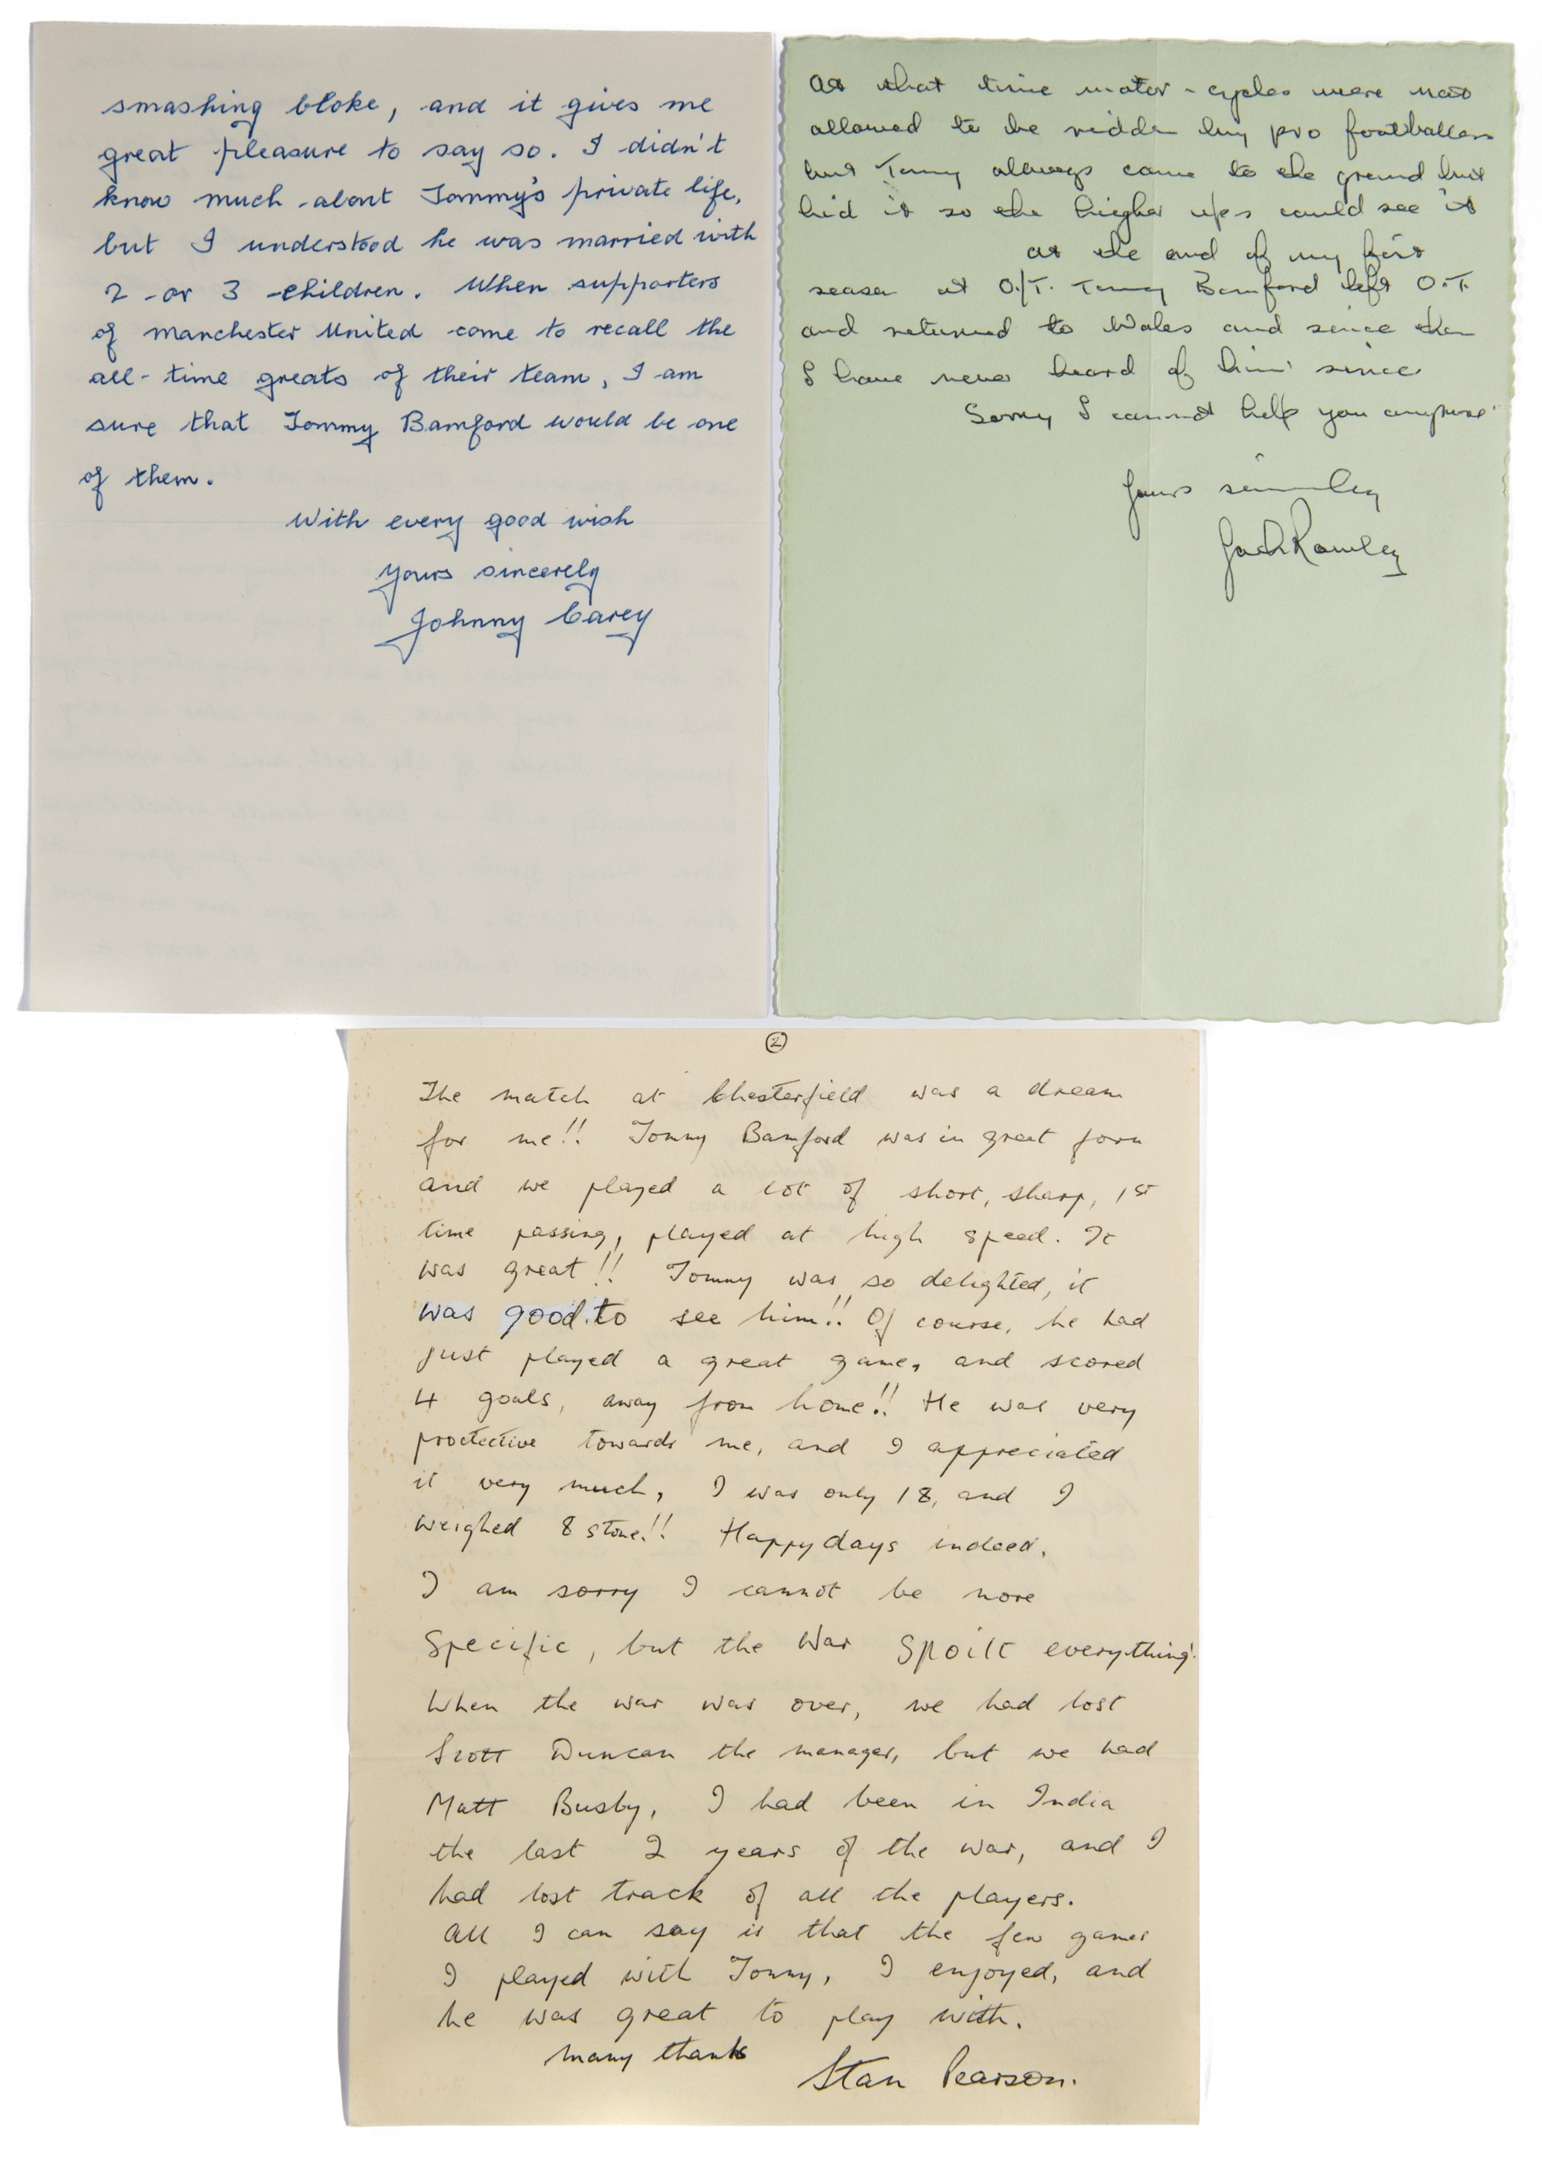 smashing bloke, and it gives me
great pleasure to say so. I didn't
know much about Tommy's private life,
but I understood he was married with
2 or 3 children. When supporters
of Manchester United come to recall the
all-time greats of their team, I am
sure that Tommy Bamford would be one
of them.
With every good wish
yours sincerely
Johnny Carey
At that time motor-cycles were not
allowed to be ridden by pro footballers
but Tommy always came to the ground but
hid it so the higher ups could see it
at the end of my first
season at O/T. Tommy Bamford left O.T.
and returned to Wales and since then
I have never heard of him since
Sorry I cannot help you anymore
Yours sincerely
Jack Rowley
2
The match at Chesterfield was a dream
for me!! Tommy Bamford was in great form
and we played a lot of short, sharp, 1st
time passing, played at high speed. It
was great!! Tommy was so delighted, it
was good to see him!! Of course, he had
just played a great game, and scored
4 goals, away from home!! He was very
protective towards me, and I appreciated
it very much, I was only 18, and I
weighed 8 stone!! Happy days indeed.
I am sorry I cannot be more
specific, but the War spoilt everything!
When the war was over, we had lost
Scott Duncan the manager, but we had
Matt Busby, I had been in India
the last 2 years of the war, and I
had lost track of all the players.
All I can say is that the few games
I played with Tommy, I enjoyed, and
he was great to play with.
Many thanks
Stan Pearson.